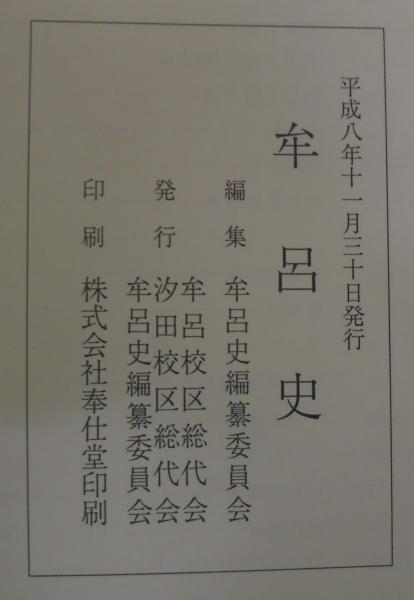 平成八年十一月三十日発行
牟呂史
編集 牟呂史編纂委員会
牟呂校区総代会
発行 汐田校区総代会
牟呂史編纂委員会
印刷 株式会社奉仕堂印刷